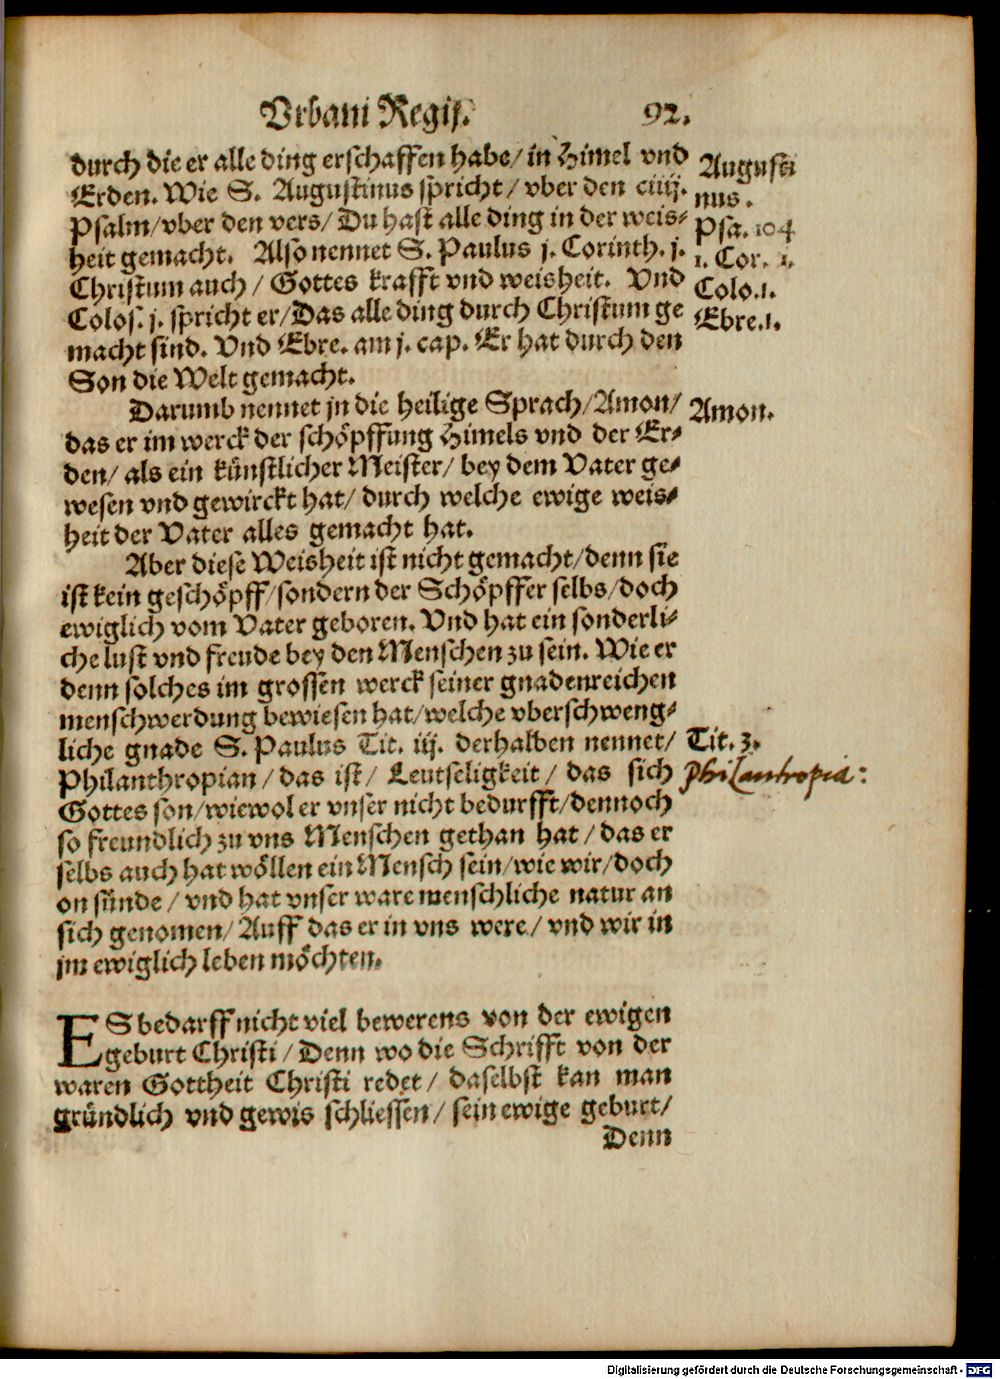 Vrbani Regij. 92.
durch die er alle ding erschaffen habe/ in Himel vnd
Erden. Wie S. Augustinus spricht/ vber den ciiij.
Psalm/ vber den vers/ Du hast alle ding in der weis⸗
heit gemacht. Also nennet S. Paulus j. Corinth. j.
Christum auch/ Gottes krafft vnd weisheit. Vnd
Colos. j. spricht er/ Das alle ding durch Christum ge
macht sind. Vnd Ebre. am j. cap. Er hat durch den
Son die Welt gemacht.
Augusti
nus.
Psa. 104
1. Cor. 1.
Colo. 1.
Ebre. 1.
Darumb nennet jn die heilige Sprach/ Amon/
das er im werck der schöpffung Himels vnd der Er⸗
den/ als ein künstlicher Meister/ bey dem Vater ge⸗
wesen vnd gewirckt hat/ durch welche ewige weis⸗
heit der Vater alles gemacht hat.
Amon.
Aber diese Weisheit ist nicht gemacht/ denn sie
ist kein geschöpff/ sondern der Schöpffer selbs/ doch
ewiglich vom Vater geboren. Vnd hat ein sonderli⸗
che lust vnd freude bey den Menschen zu sein. Wie er
denn solches im grossen werck seiner gnadenreichen
menschwerdung bewiesen hat/ welche vberschweng⸗
liche gnade S. Paulus Tit. iij. derhalben nennet/
Philanthropian/ das ist/ Leutseligkeit/ das sich
Gottes son/ wiewol er vnser nicht bedurfft/ dennoch
so freundlich zu vns Menschen gethan hat/ das er
selbs auch hat wöllen ein Mensch sein/ wie wir/ doch
on sünde/ vnd hat vnser ware menschliche natur an
sich genomen/ Auff das er in vns were/ vnd wir in
jm ewiglich leben möchten.
Tit. 3.
Philantropia:
ES bedarff nicht viel bewerens von der ewigen
geburt Christi/ Denn wo die Schrifft von der
waren Gottheit Christi redet/ daselbst kan man
gründlich vnd gewis schliessen/ sein ewige geburt/
Denn
Digitalisierung gefördert durch die Deutsche Forschungsgemeinschaft - DFG